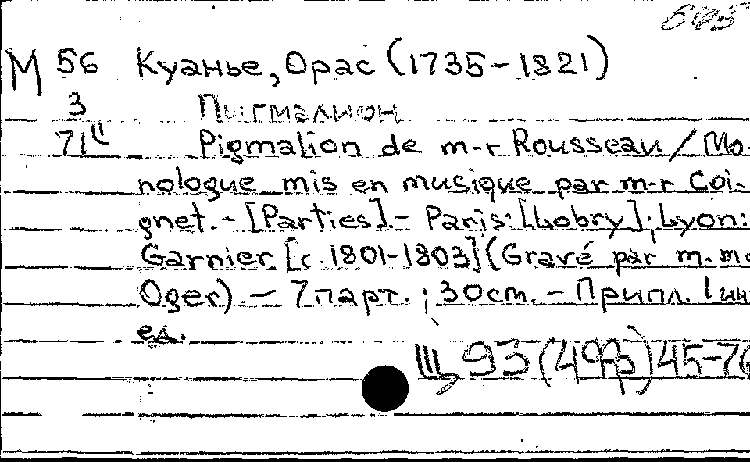 М 56 Куанье, Орас (1735-1821)
3 Пигмалион
71" Pigmalion de m-r Rousseau / Mo-
nologue mis en musique par m-r Coi-
gnet. - [Parties]. - Paris: [Lobry]; Lyon:
Garnier [c. 1801-1803] (Gravé par m. me
Oger) - 7 парт. ; 30 cm. - Припл. 1 ин
ед.
III 93 45-76